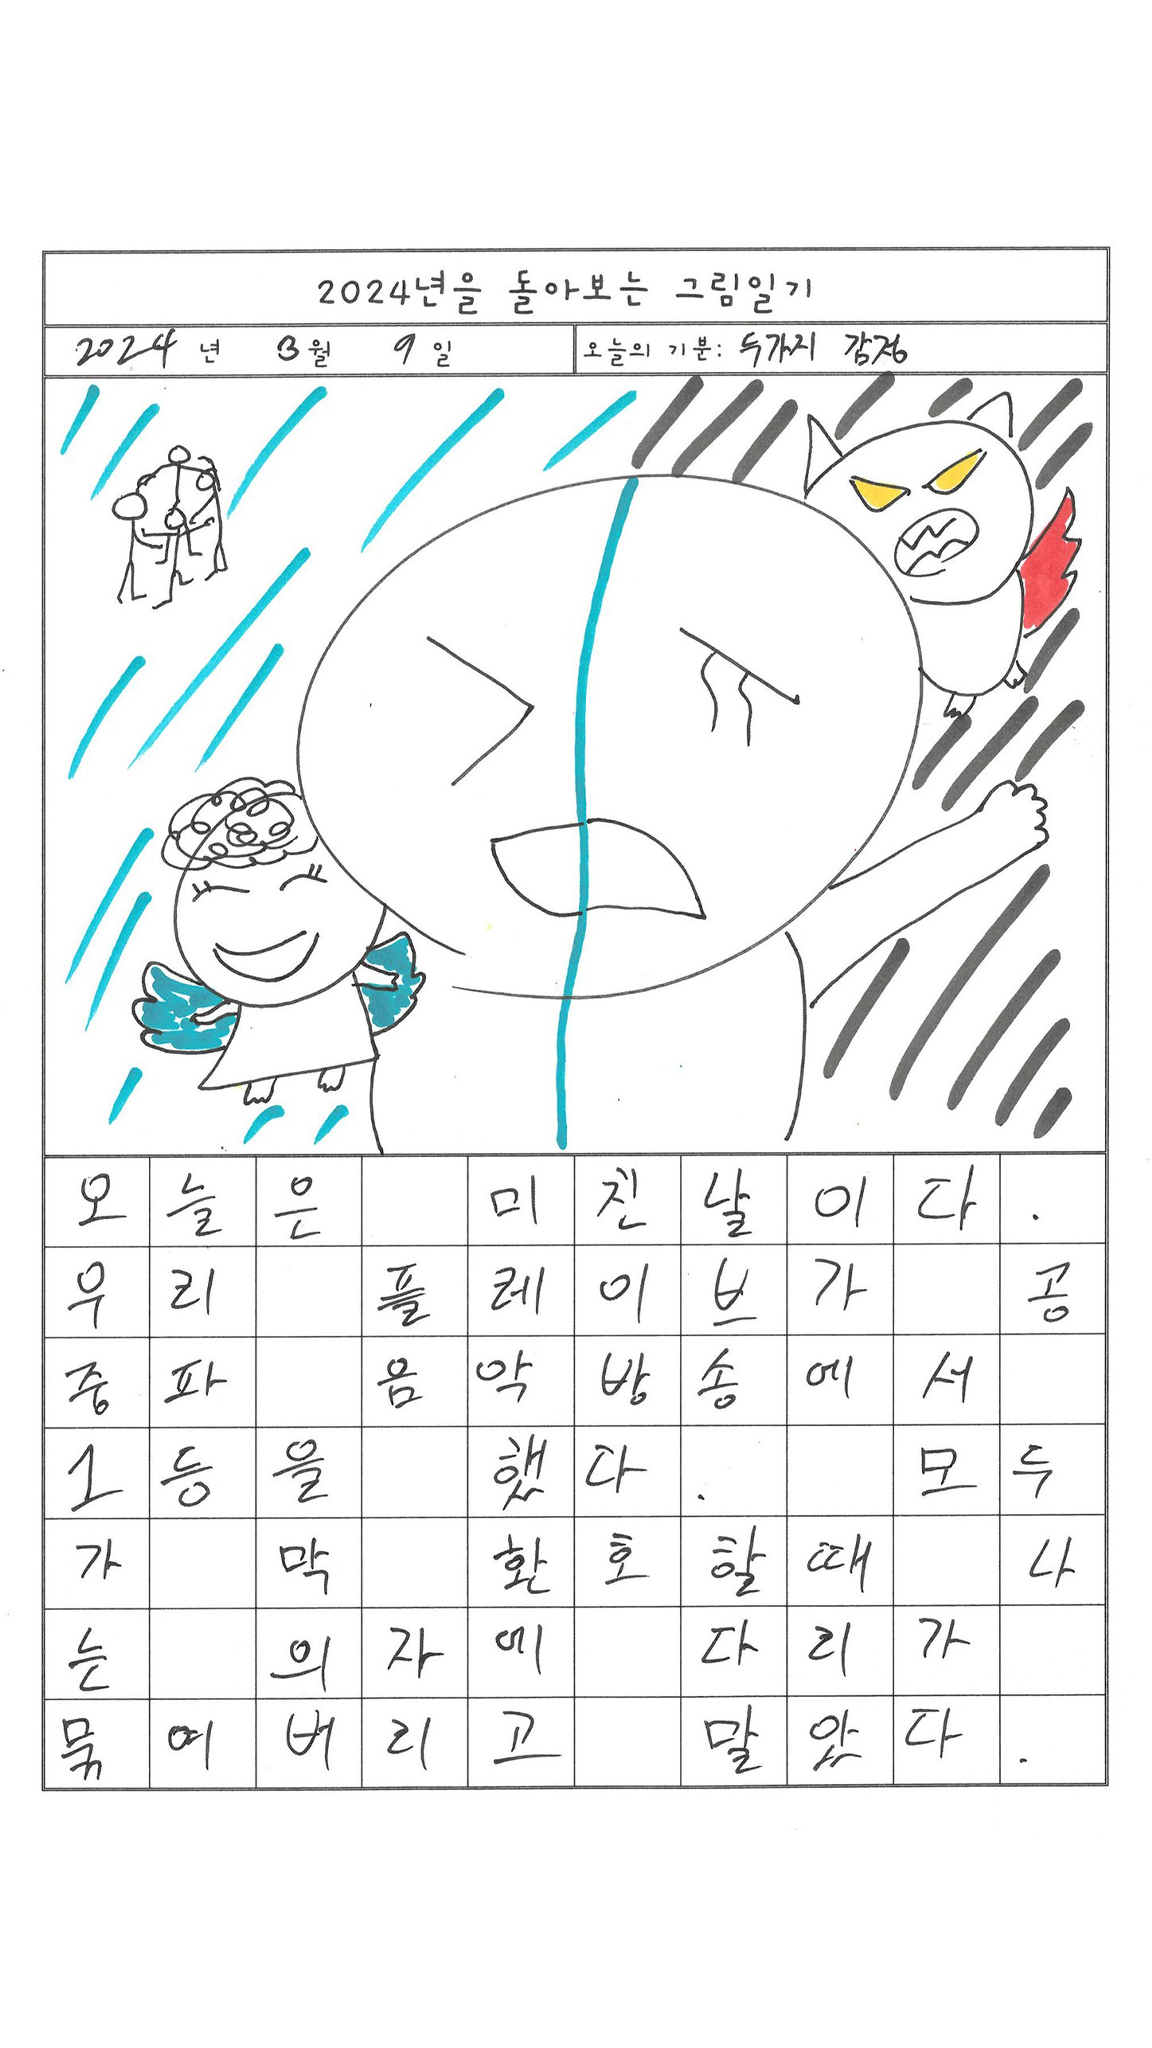 2024년을 돌아보는 그림일기
2024 년 3월 9 일 오늘의 기분: 두가지 감정
오늘은 미친날이다.
우리 플레이브가 공
중파 음악방송에서
1등을 했다. 모두
가 막 환호할때 나
는 의자에 다리가
묶여버리고 말았다.